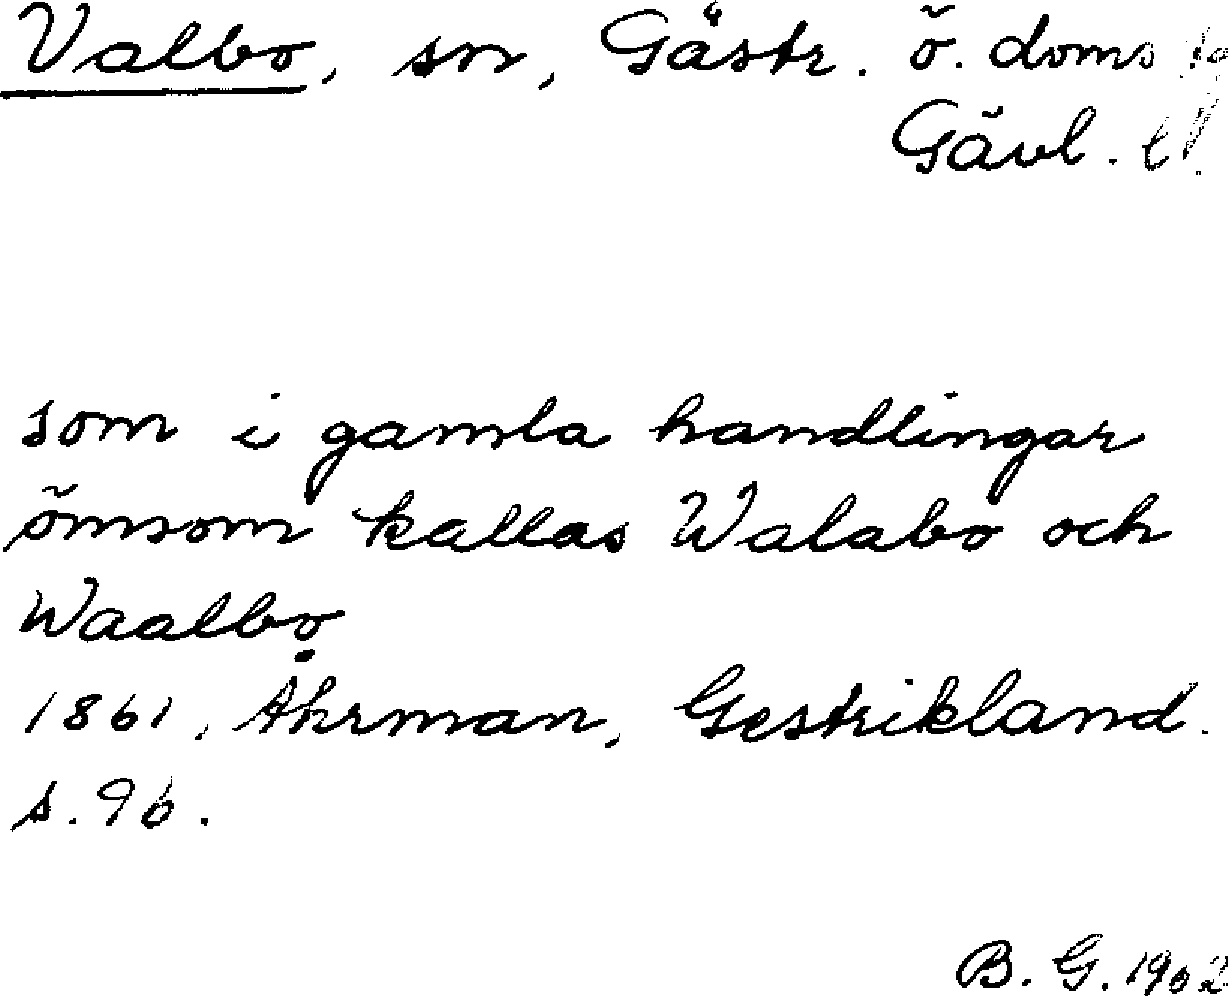 Valbo, sn, Gästr. ö. doms
Gävl. l.
som i gamla handlingar
ömsom kallas Walabo och
Waalbo
1861, Åhrman, Gestrikland.
s. 96.
B. G. 1902